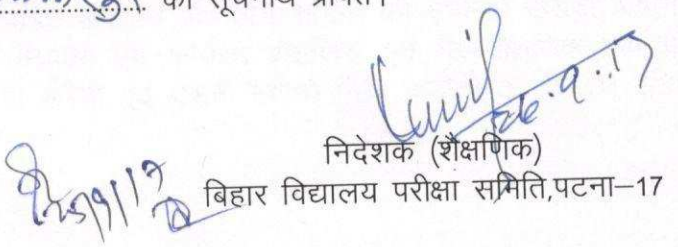 को सूचनार्थ प्रेषित।
26.9.17
निदेशक (शैक्षणिक)
25/9/17
बिहार विद्यालय परीक्षा समिति,पटना–17